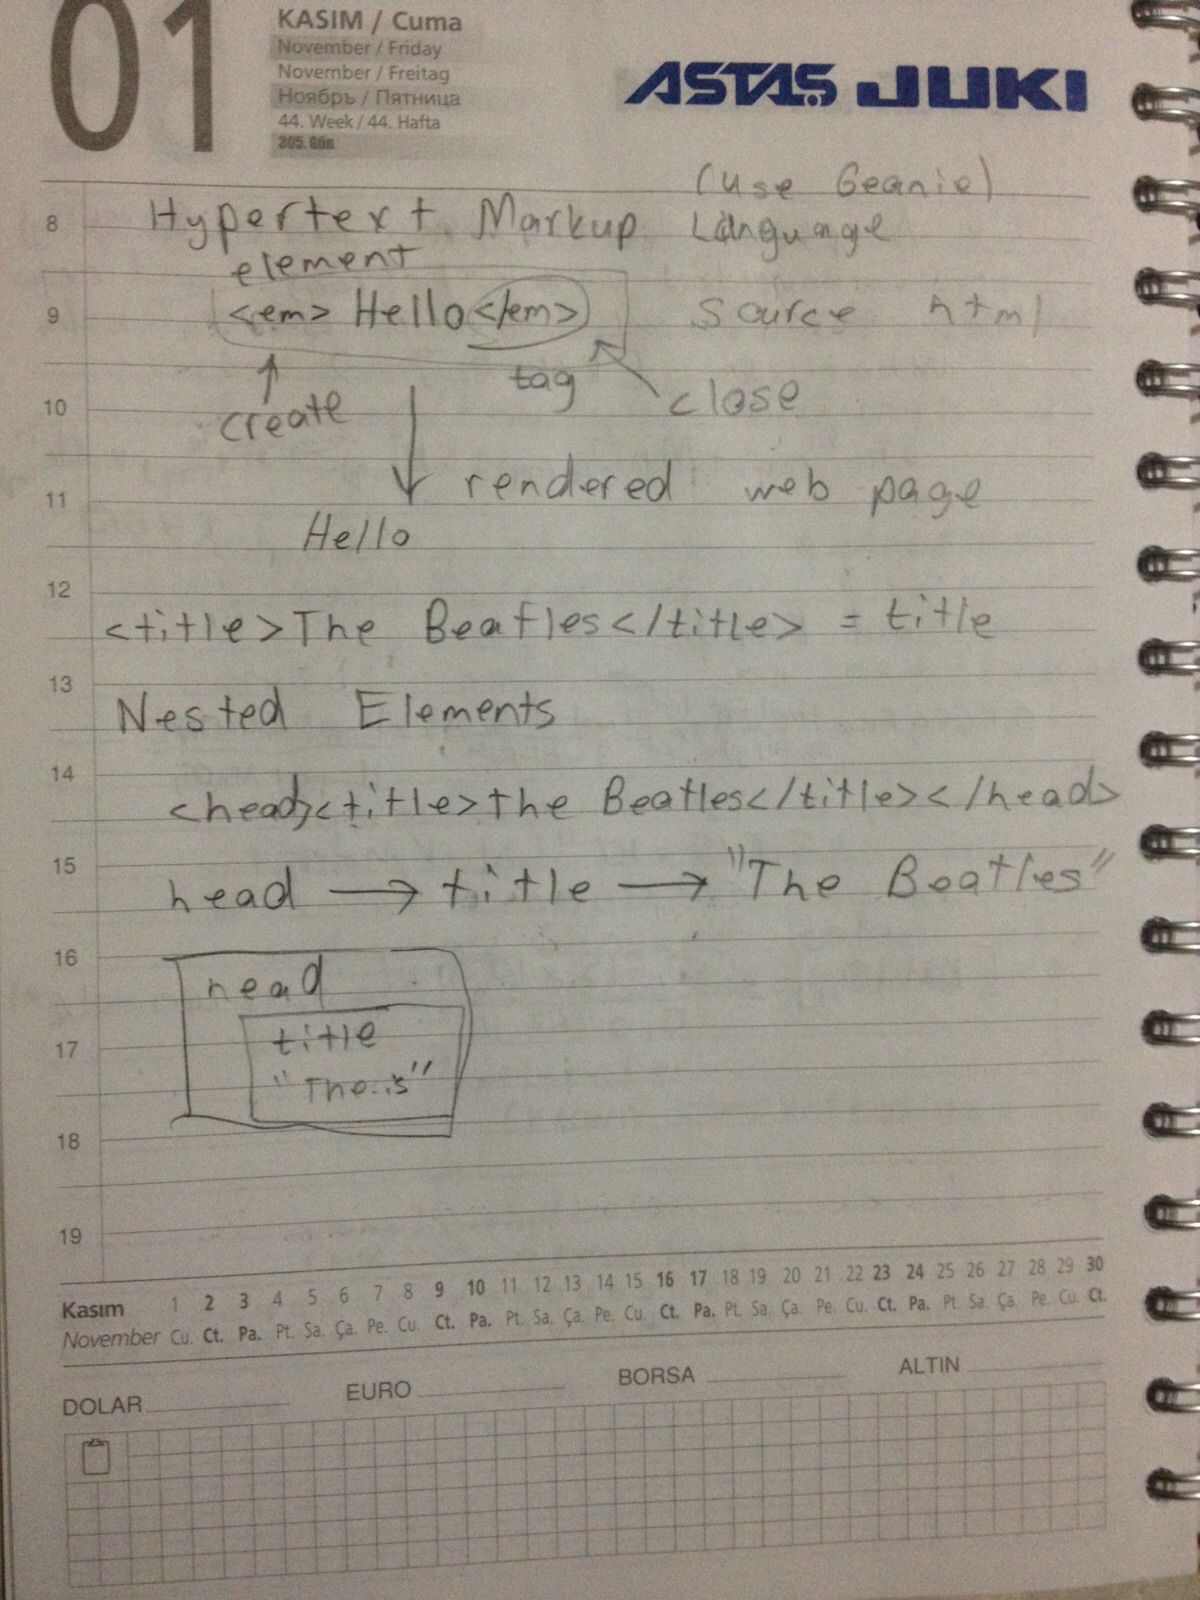 01
KASIM / Cuma
November / Friday
November / Freitag
Ноябрь / Пятница
44. Week / 44. Hafta
305. Gün
ASTAŞ JUKI
(use Geanie)
8 Hypertext Markup Language
element
9 <em> Hello </em> source html
tag
create close
10
11 rendered web page
Hello
12
<title>The Beatles</title> = title
13 Nested Elements
14 <head><title>The Beatles</title></head>
15 head → title → "The Beatles"
16 head
17 title
"The..s"
18
19
Kasım 1 2 3 4 5 6 7 8 9 10 11 12 13 14 15 16 17 18 19 20 21 22 23 24 25 26 27 28 29 30
November Cu. Ct. Pa. Pt. Sa. Ça. Pe. Cu. Ct. Pa. Pt. Sa. Ça. Pe. Cu. Ct. Pa. Pt. Sa. Ça. Pe. Cu. Ct. Pa. Pt. Sa. Ça. Pe. Cu. Ct.
DOLAR EURO BORSA ALTIN